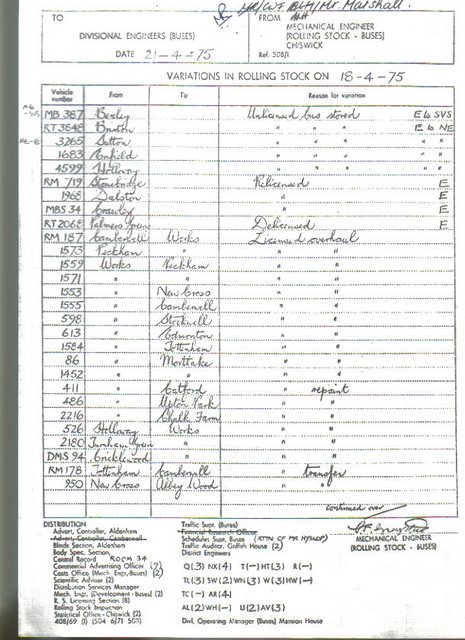 Mr Marshall.
TO
DIVISIONAL ENGINEERS (BUSES)
DATE 21-4-75
FROM
MECHANICAL ENGINEER
(ROLLING STOCK - BUSES)
CHISWICK
Ref. 508/1
VARIATIONS IN ROLLING STOCK ON 18-4-75
Vehicle number From To Reason for variation
MB 387 Bexley Unlicensed bus stored E to SVS
RT 3848 Brixton " " " E to NE
3265 Sutton " " " " "
1683 Enfield " " " " "
4599 Holloway " " " " "
RM 719 Stonebridge Relicensed E
1968 Dalston " E
MBS 34 Crawley " E
RT 2068 Palmers Green Delicensed E
RM 187 Camberwell Works Licensed overhaul
1573 Peckham " " "
1559 Works Peckham " "
1571 " " " "
1553 " New Cross " "
1555 " Camberwell " "
598 " Stockwell " "
613 " Edmonton " "
1584 " Tottenham " "
86 " Mortlake " "
1452 " " " "
411 " Catford " repaint
486 " Upton Park " "
2216 " Chalk Farm " "
526 Holloway Works " "
2180 Turnham Green " " "
DMS 94 Cricklewood " " "
RM 178 Tottenham Camberwell " transfer
950 New Cross Abbey Wood " "
continued over
DISTRIBUTION
Advert. Controller, Aldenham
Advert. Controller, Camberwell
Blinds Section, Aldenham
Body Spec. Section,
Central Record ROOM 34
Commercial Advertising Officer (2)
Costs Office (Mech. Engr. Buses) (2)
Scientific Adviser (2)
Distribution Services Manager
Mech. Engr. (Development - Buses) (2)
R. S. Licensing Section (8)
Rolling Stock Inspection
Statistical Office - Chiswick (2)
408/69 (I) (504 6/71 508)
Traffic Supt. (Buses)
Financial Research Officer
Schedules Supt. Buses (ATTN OF MR HYSLOP)
Traffic Auditor, Griffith House (2)
District Engineers
Q(3) NX(4) T(—) HT(3) R(—)
TL(3) SW(2) WN(3) W(3) HW(—)
TC(—) AR(4)
AL(2) WH(—) U(2) AV(3)
Divl. Operating Manager (Buses) Mansion House
MECHANICAL ENGINEER
(ROLLING STOCK - BUSES)